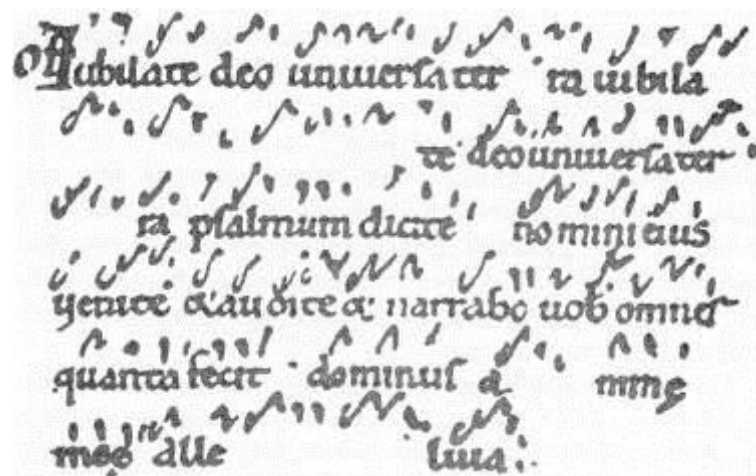 Of Iubilate deo uniuersa ter ra iubila
te deo uniuersa ter
ra psalmum dicite nomini eius
uenite & audite & narrabo uob omnes
quanta fecit dominus a nimę
męę alle luia